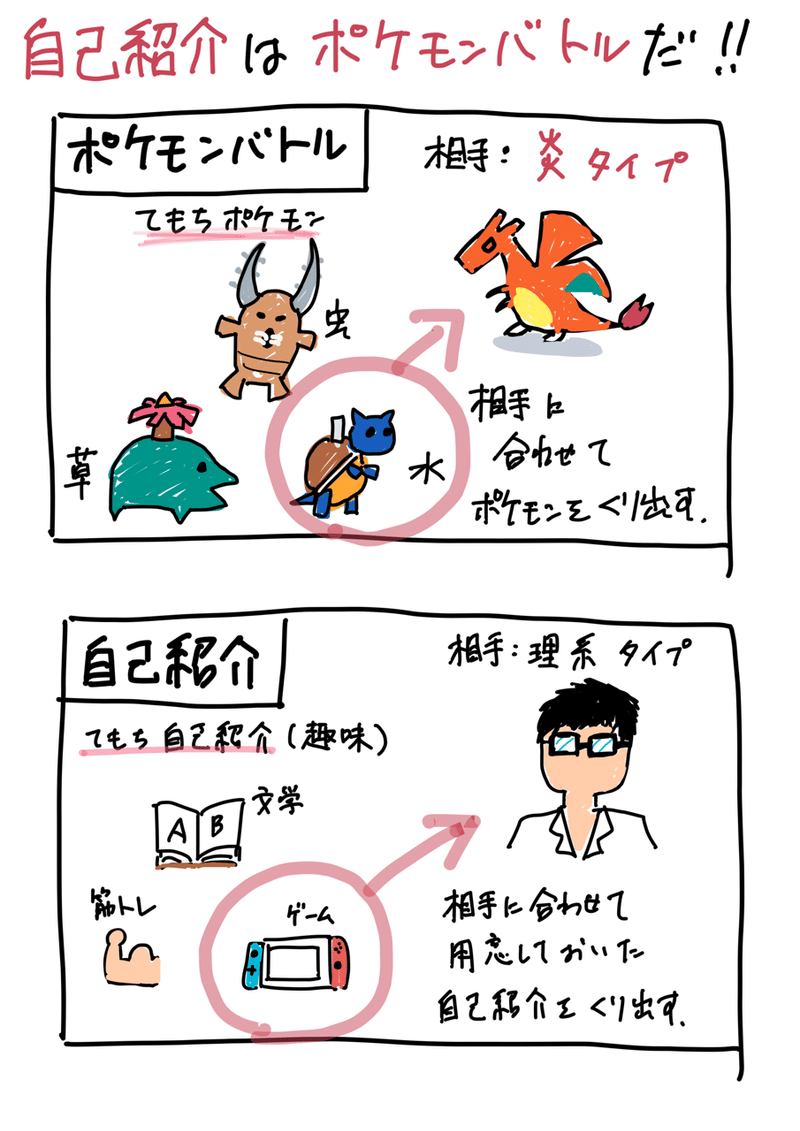 自己紹介はポケモンバトルだ!!
ポケモンバトル
相手：炎タイプ
てもちポケモン
虫
草
水
相手に
合わせて
ポケモンをくり出す.
自己紹介
相手：理系タイプ
てもち自己紹介(趣味)
文学
A B
筋トレ
ゲーム
相手に合わせて
用意しておいた
自己紹介をくり出す.